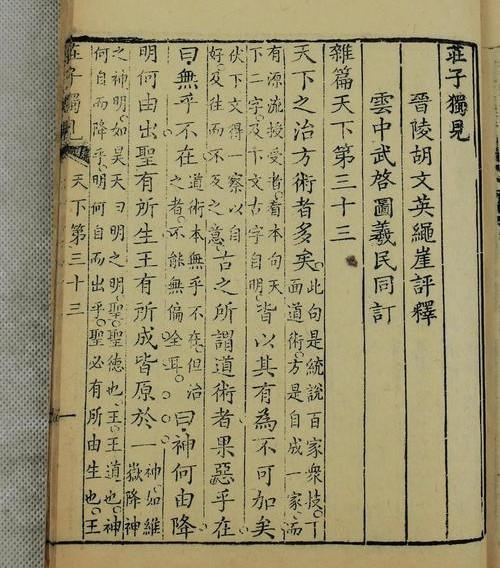 莊子獨見
晉陵胡文英繩崖評釋
雲中武啓圖羲民同訂
雜篇天下第三十三
天下之治方術者多矣此句是統說百家衆技下面道術方是自成一家而
有源流授受者看本句天下二字及下文古字自明皆以其有為不可加矣
伏下文得一察以自好及往而不反之意古之所謂道術者果惡乎在
曰無乎不在道術本無乎不在但治之者不能無偏全耳曰神何由降
明何由出聖有所生王有所成皆原於一神如維嶽降神
之神明如昊天曰明之明聖聖德也王王道也神何自而降乎明何自而出乎聖必有所由生也王
莊子獨見 天下第三十三